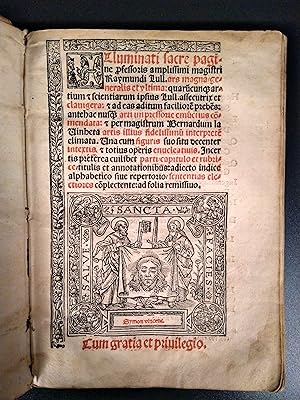 Illuminati sacre pagi-
ne pfessoris amplissimi magistri
Raymundi Lull. ars magna: ge-
neralis et vltima: quarūcunq3 ar-
tium & scientiarum ipsius Lull. assecutrix et
clauigera: & ad eas aditum faciliorē prebēs:
antehac nusq̄ arti impressorie emūctius cō-
mendata: & per magistrum Bernardum la
Uinheta artis illius fidelissimū interpretē
elimata. Una cum figuris suo situ decenter
insertis, & totius operis enucleatiuis. Inser-
tis preterea cuilibet parti capitulo et rubrice
titulis et annotationibus: adiecto indice
alphabetico siue repertorio: sententias ele-
ctiores cōplectente: ad folia remissiuo.
SANCTA
SALVE
FACIES
Symon vincent.
Cum gratia et priuilegio.